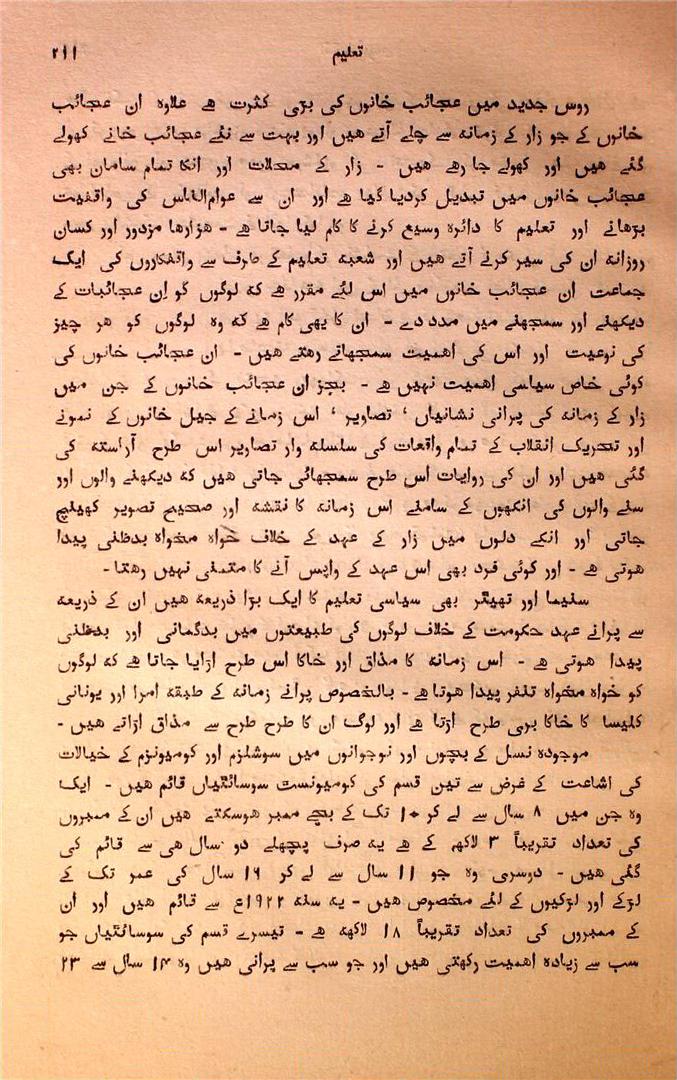 تعلیم ۲۱۱
روس جدید میں عجائب خانوں کی بڑی کثرت ھے علاوہ ان عجائب
خانوں کے جو زار کے زمانہ سے چلے آتے ھیں اور بہت سے نئے عجائب خانے کھولے
گئے ھیں اور کھولے جا رھے ھیں - زار کے محلات اور انکا تمام سامان بھی
عجائب خانوں میں تبدیل کردیا گیا ھے اور ان سے عوام‌الناس کی واقفیت
بڑھانے اور تعلیم کا دائرہ وسیع کرنے کا کام لیا جاتا ھے - ھزارھا مزدور اور کسان
روزانہ ان کی سیر کرنے آتے ھیں اور شعبہ تعلیم کے طرف سے واقفکاروں کی ایک
جماعت ان عجائب خانوں میں اس لئے مقرر ھے کہ لوگوں کو اِن عجائبات کے
دیکھنے اور سمجھنے میں مدد دے - ان کا یھی کام ھے کہ وہ لوگوں کو ھر چیز
کی نوعیت اور اس کی اھمیت سمجھاتے رھتے ھیں - ان عجائب خانوں کی
کوئی خاص سیاسی اھمیت نہیں ھے - بجز ان عجائب خانوں کے جن میں
زار کے زمانہ کی پرانی نشانیاں ‘ تصاویر ‘ اس زمانے کے جیل خانوں کے نمونے
اور تحریک انقلاب کے تمام واقعات کی سلسلہ وار تصاویر اس طرح آراستہ کی
گئی ھیں اور ان کی روایات اس طرح سمجھائی جاتی ھیں کہ دیکھنے والوں اور
سننے والوں کی انکھوں کے سامنے اس زمانہ کا نقشہ اور صحیح تصویر کھینچ
جاتی اور انکے دلوں میں زار کے عہد کے خلاف خواہ مخواہ بدظنی پیدا
ھوتی ھے - اور کوئی فرد بھی اس عہد کے واپس آنے کا متمنی نہیں رھتا -
سنیما اور تھیٹر بھی سیاسی تعلیم کا ایک بڑا ذریعہ ھیں ان کے ذریعہ
سے پرانے عہد حکومت کے خلاف لوگوں کی طبیعتوں میں بدگمانی اور بدظنی
پیدا ھوتی ھے - اس زمانہ کا مذاق اور خاکا اس طرح اڑایا جاتا ھے کہ لوگوں
کو خواہ مخواہ تنفر پیدا ھوتا ھے - بالخصوص پرانے زمانہ کے طبقہ امرا اور یونانی
کلیسا کا خاکا بری طرح اڑتا ھے اور لوگ ان کا طرح طرح سے مذاق اڑاتے ھیں -
موجودہ نسل کے بچوں اور نوجوانوں میں سوشلزم اور کومیونزم کے خیالات
کی اشاعت کے غرض سے تین قسم کی کومیونسٹ سوسائٹیاں قائم ھیں - ایک
وہ جن میں ۸ سال سے لے کر ۱۰ تک کے بچے ممبر ھوسکتے ھیں ان کے ممبروں
کی تعداد تقریباً ۳ لاکھہ کے ھے یہ صرف پچھلے دو سال ھی سے قائم کی
گئی ھیں - دوسری وہ جو ۱۱ سال سے لے کر ۱۶ سال کی عمر تک کے
لڑکے اور لڑکیوں کے لئے مخصوص ھیں - یہ سنہ ۱۹۲۲ع سے قائم ھیں اور ان
کے ممبروں کی تعداد تقریباً ۱۸ لاکھہ ھے - تیسرے قسم کی سوسائٹیاں جو
سب سے زیادہ اھمیت رکھتی ھیں اور جو سب سے پرانی ھیں وہ ۱۴ سال سے ۲۳